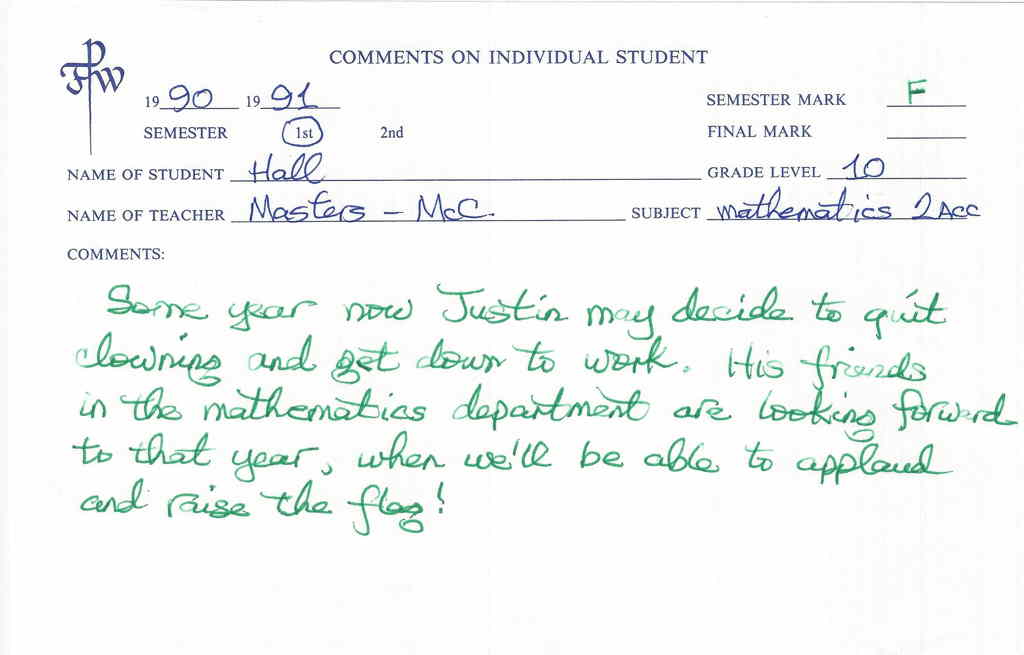 FPW
COMMENTS ON INDIVIDUAL STUDENT
1990 1991
SEMESTER MARK F
SEMESTER 1st 2nd
FINAL MARK
NAME OF STUDENT Hall GRADE LEVEL 10
NAME OF TEACHER Masters - McC. SUBJECT mathematics 2Acc
COMMENTS:
Some year now Justin may decide to quit
clowning and get down to work. His friends
in the mathematics department are looking forward
to that year, when we'll be able to applaud
and raise the flag!